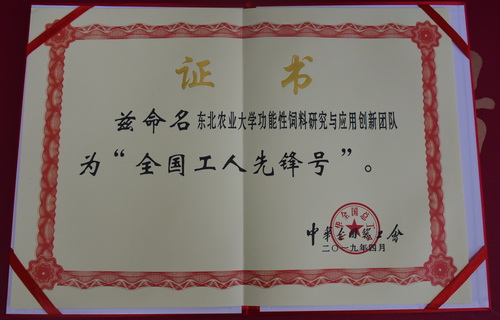 证书
兹命名东北农业大学功能性饲料研究与应用创新团队
为“全国工人先锋号”。
中华全国总工会
二〇一九年四月